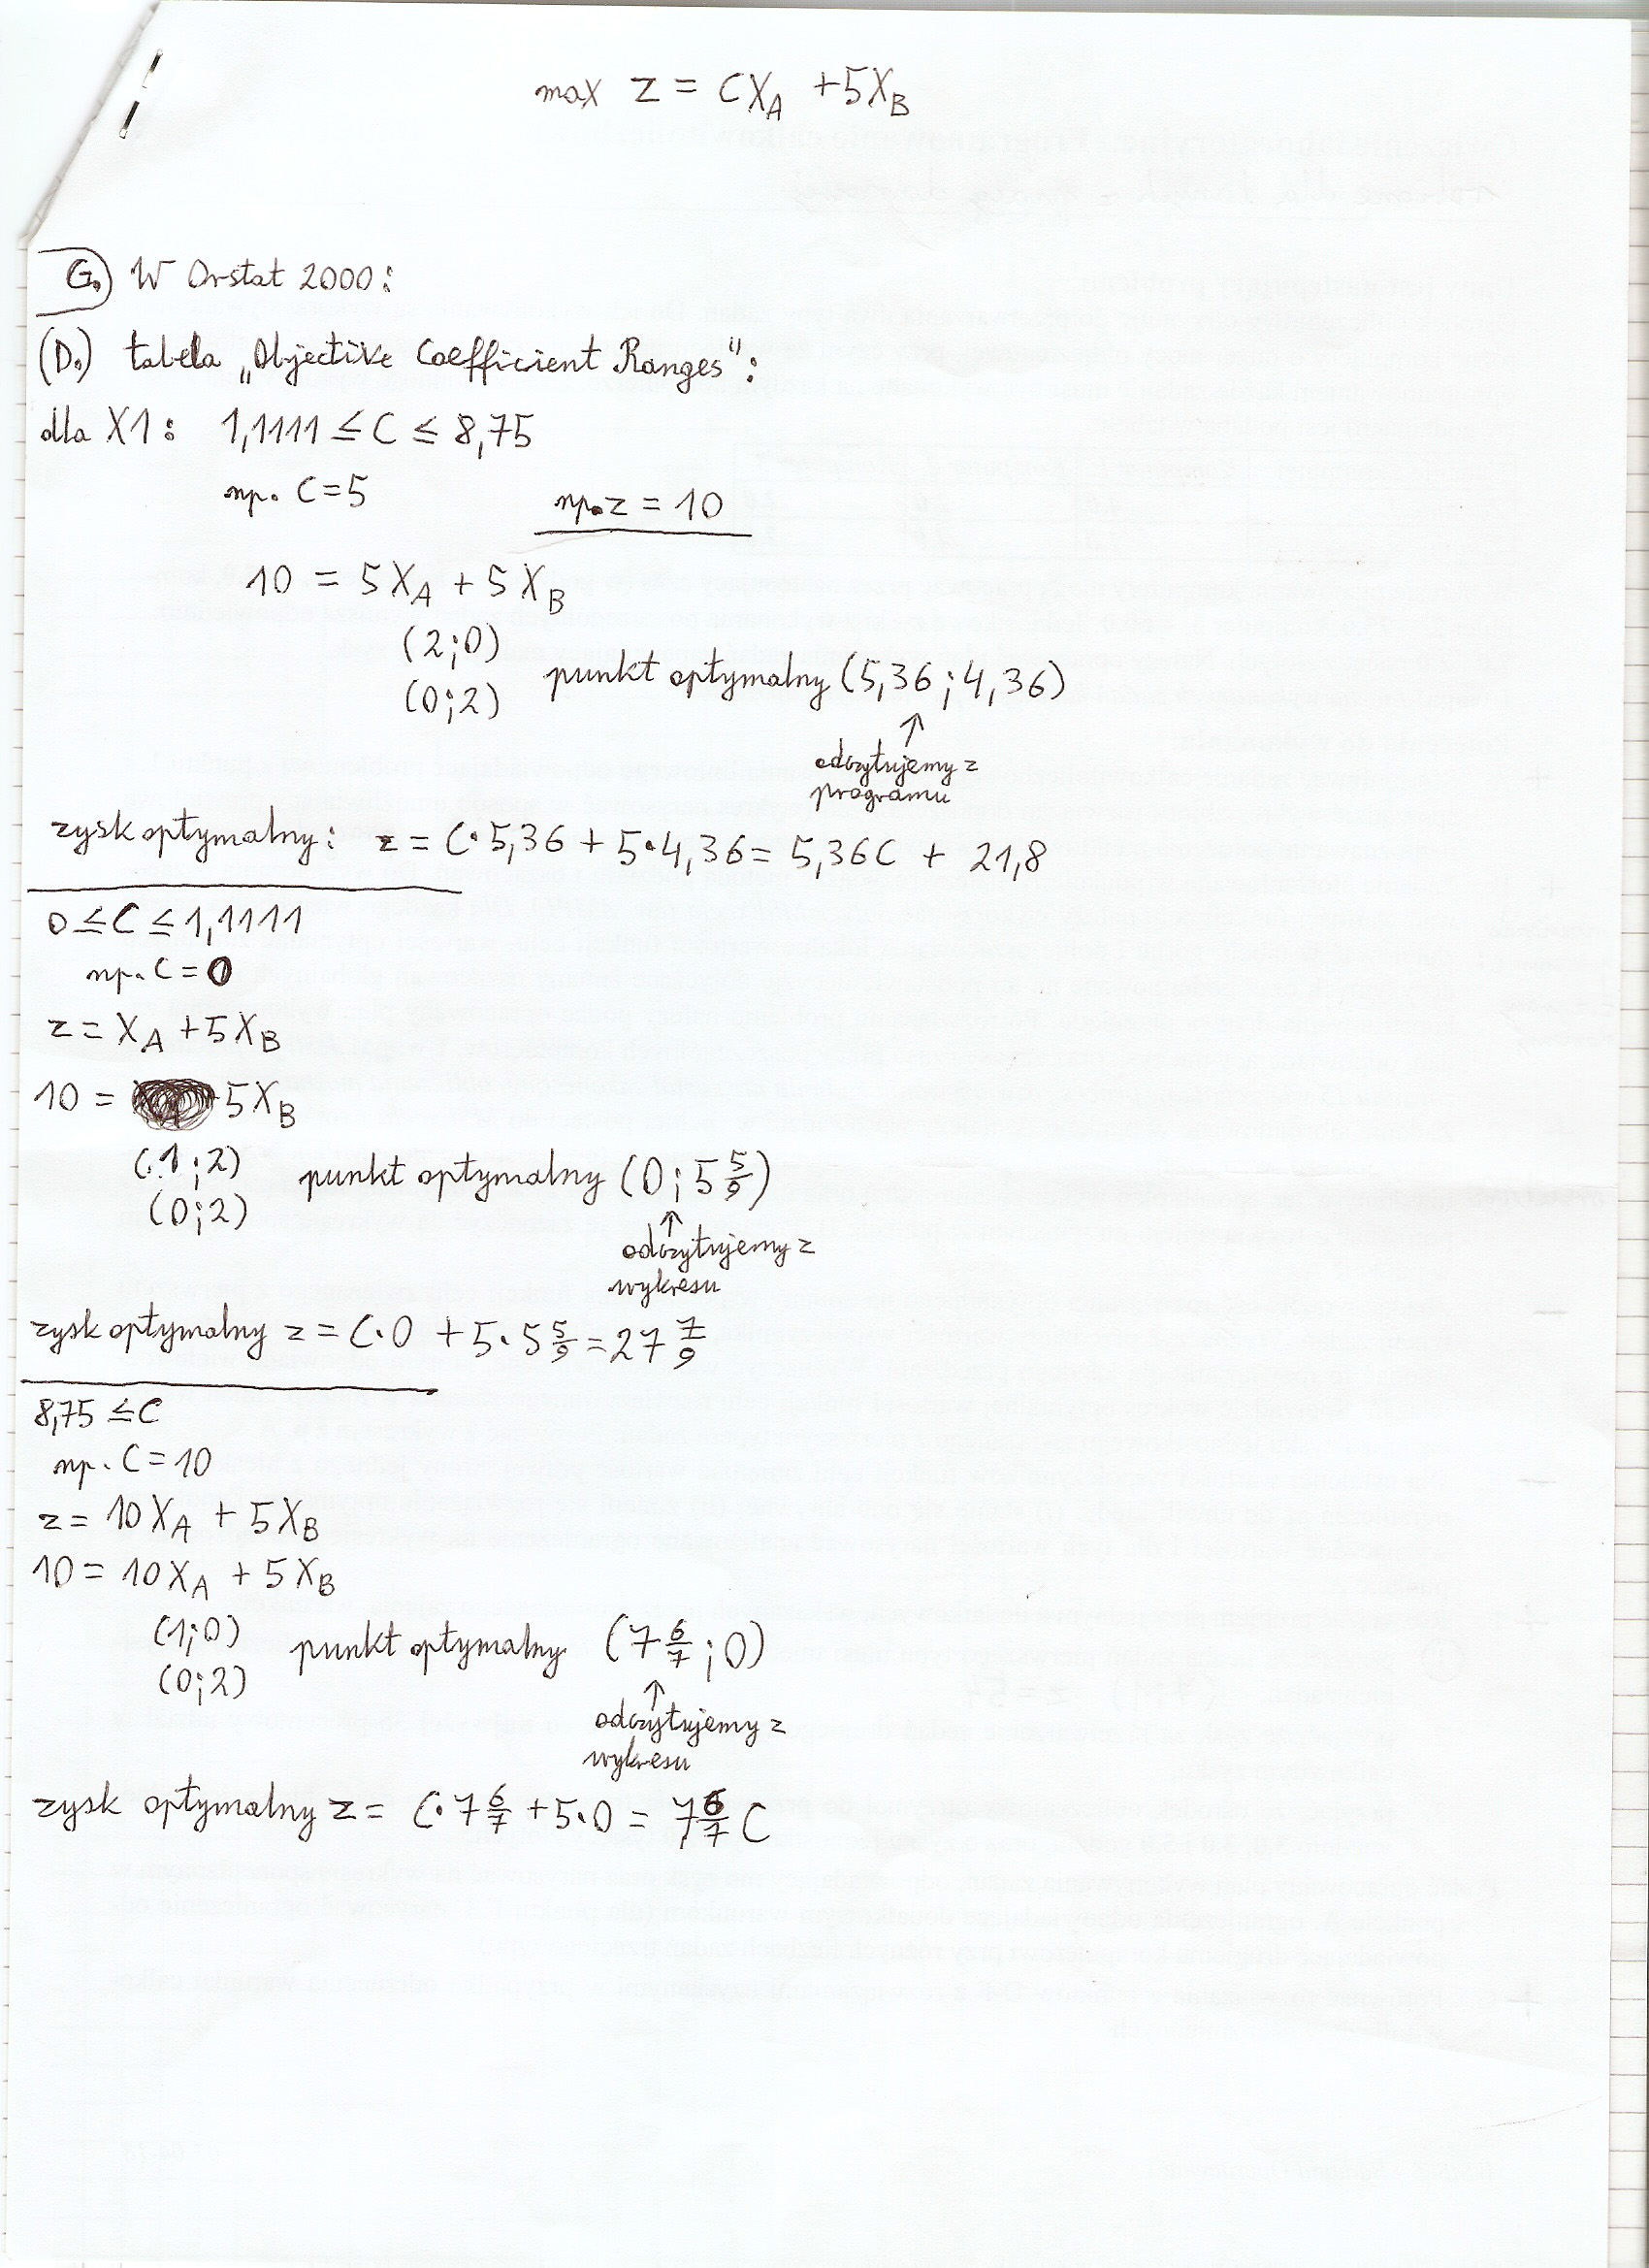 max z = CXA + 5XB
G. W Orstat 2000:
(D.) tabela „Objective Coefficient Ranges":
dla X1: 1,1111 ≤ C ≤ 8,75
np. C = 5
np. z = 10
10 = 5XA + 5XB
(2;0)
(0;2)
punkt optymalny (5,36 ; 4,36)
↑
odczytujemy z
programu
zysk optymalny: z = C·5,36 + 5·4,36 = 5,36C + 21,8
0 ≤ C ≤ 1,1111
np. C = 0
z = XA + 5XB
10 = 5XB
(1;2)
(0;2)
punkt optymalny (0; 5 5/9)
↑
odczytujemy z
wykresu
zysk optymalny z = C·0 + 5·5 5/9 = 27 7/9
8,75 ≤ C
np. C = 10
z = 10XA + 5XB
10 = 10XA + 5XB
(1;0)
(0;2)
punkt optymalny (7 6/7 ; 0)
↑
odczytujemy z
wykresu
zysk optymalny z = C·7 6/7 + 5·0 = 7 6/7 C